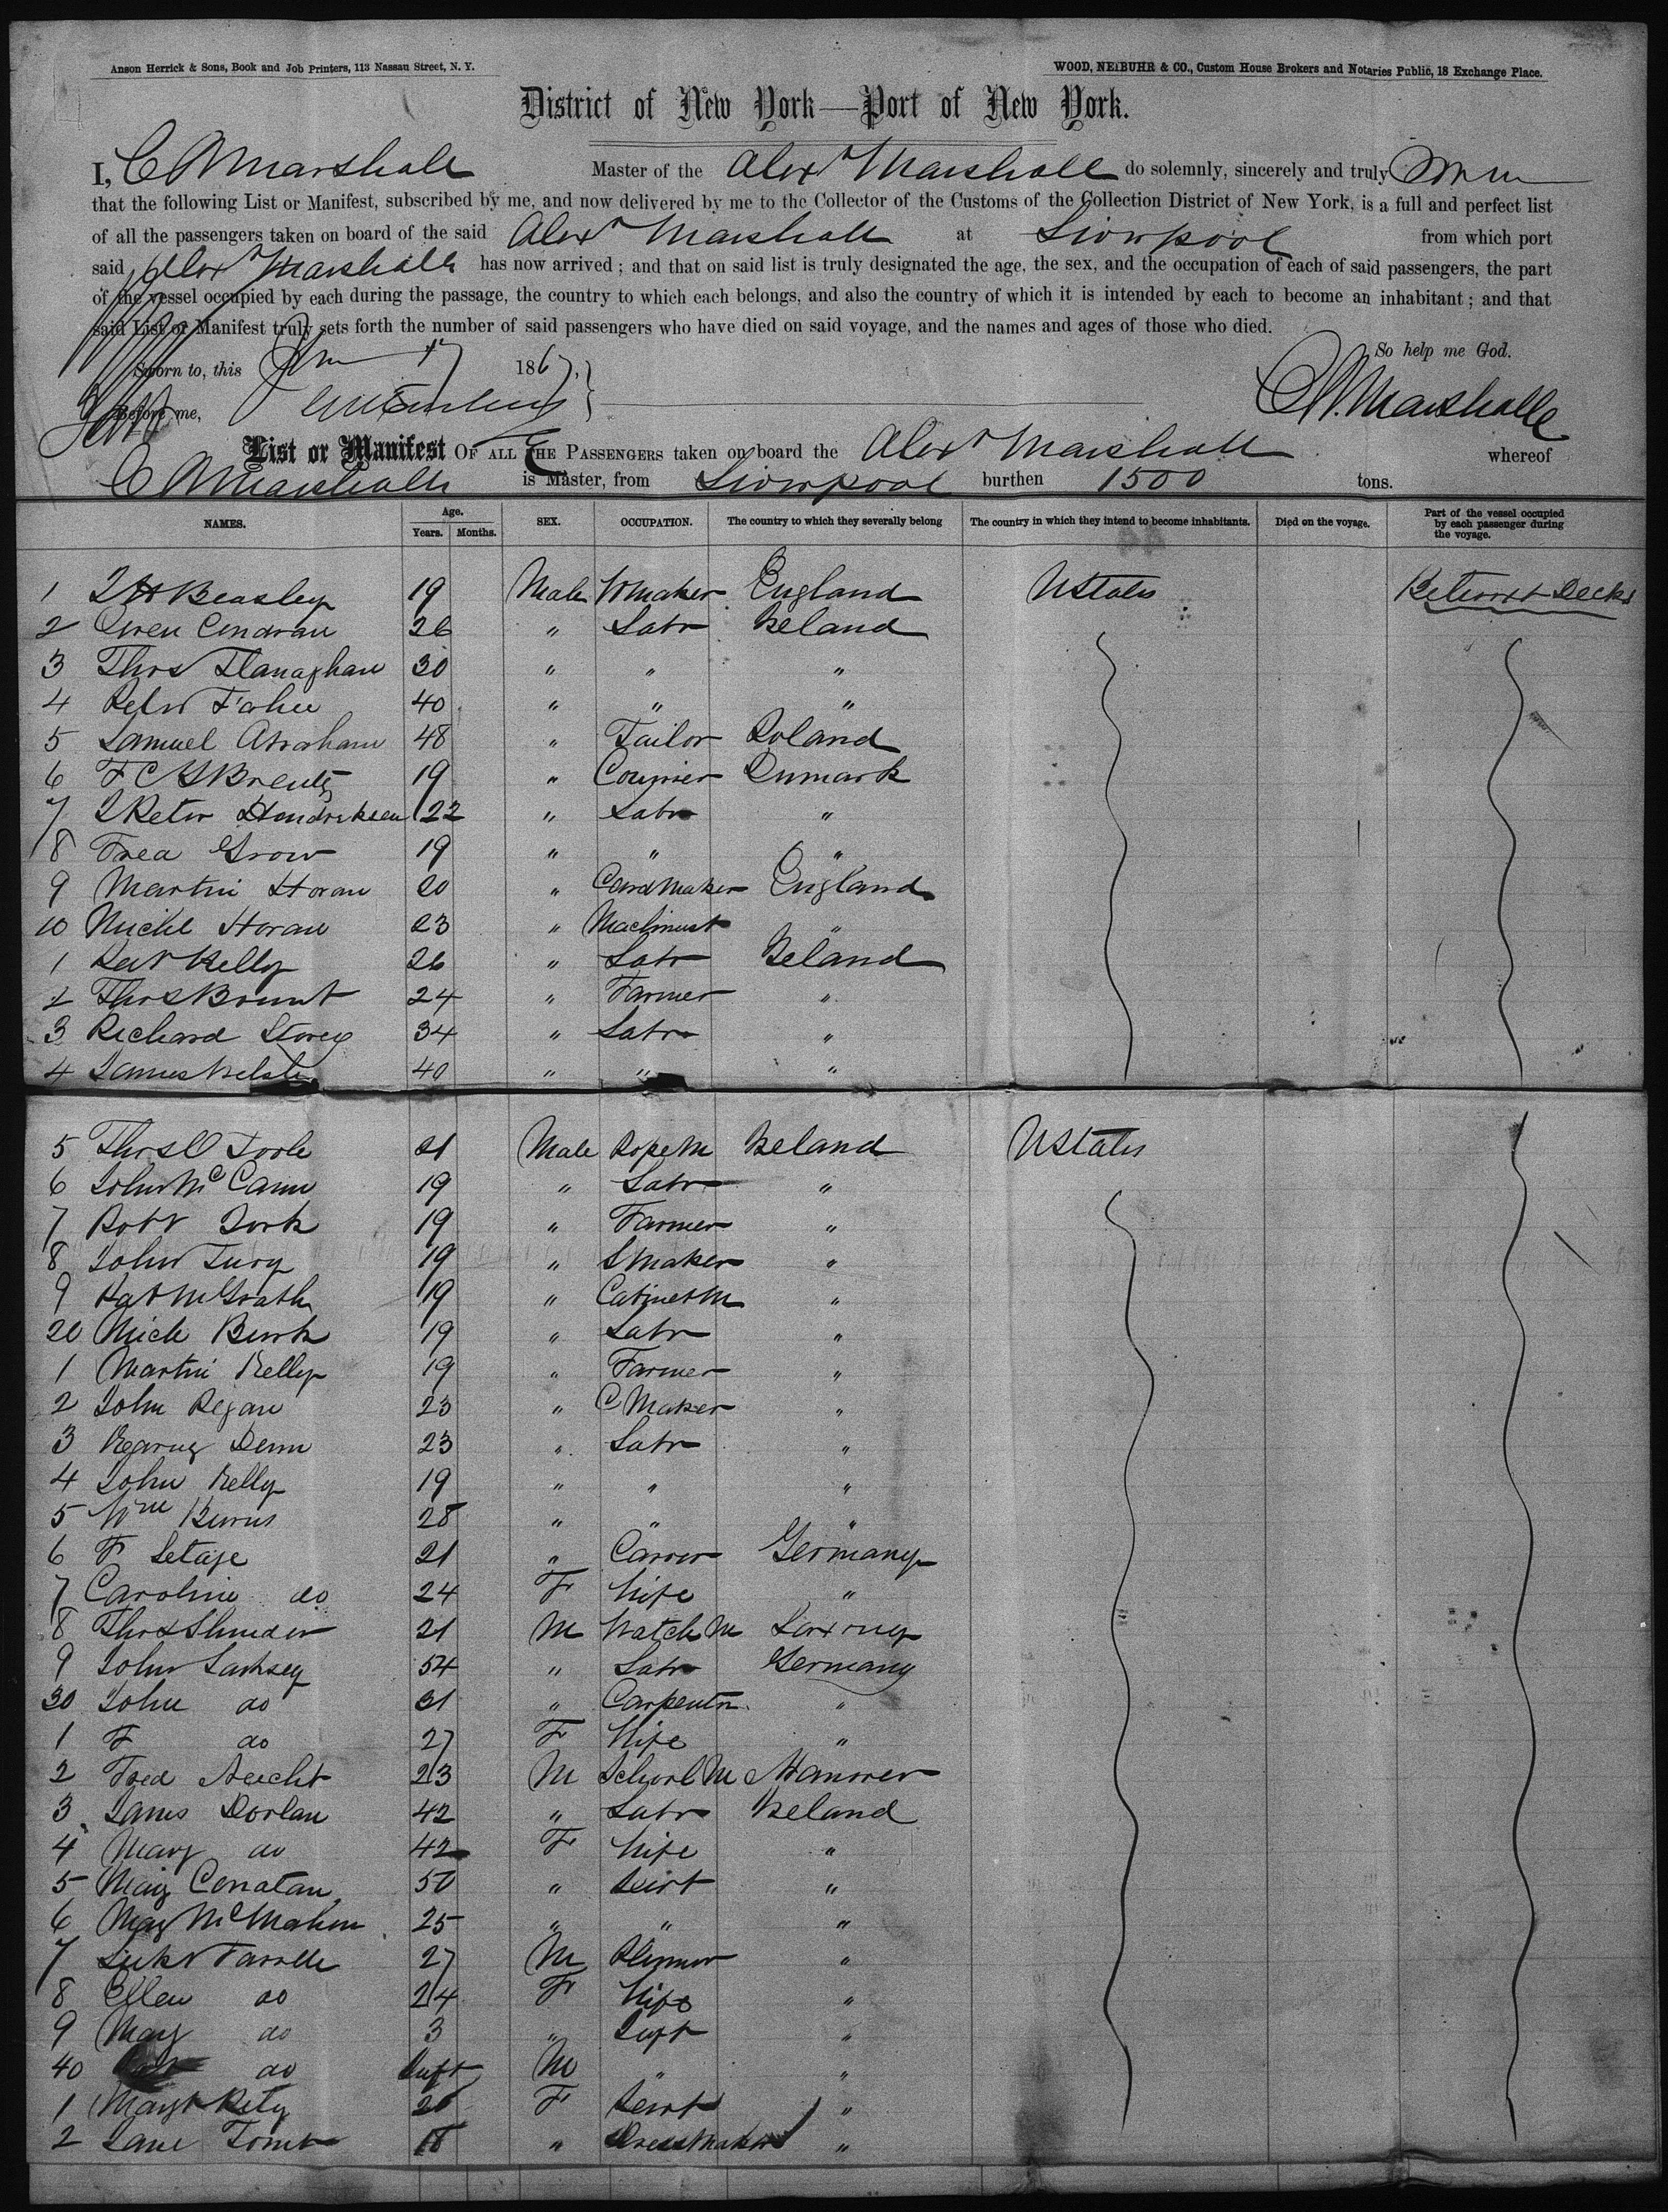 Anson Herrick & Sons, Book and Job Printers, 113 Nassau Street, N. Y.
WOOD, NEIBUHR & CO., Custom House Brokers and Notaries Public, 18 Exchange Place.
District of New York—Port of New York.
I, C A Marshall Master of the Alexr Marshall do solemnly, sincerely and truly
that the following List or Manifest, subscribed by me, and now delivered by me to the Collector of the Customs of the Collection District of New York, is a full and perfect list
of all the passengers taken on board of the said Alexr Marshall at Liverpool from which port
said Alexr Marshall has now arrived; and that on said list is truly designated the age, the sex, and the occupation of each of said passengers, the part
of the vessel occupied by each during the passage, the country to which each belongs, and also the country of which it is intended by each to become an inhabitant; and that
said List or Manifest truly sets forth the number of said passengers who have died on said voyage, and the names and ages of those who died.
So help me God.
Sworn to, this 17 1867,
Before me,
C A Marshall
List or Manifest OF ALL THE PASSENGERS taken on board the Alexr Marshall whereof
C A Marshall is Master, from Liverpool burthen 1500 tons.
NAMES. Age. Years. Months. SEX. OCCUPATION. The country to which they severally belong The country in which they intend to become inhabitants. Died on the voyage. Part of the vessel occupied by each passenger during the voyage.
1 Beasley 19 Male Maker England UStates Between Decks
2 Owen Condran 26 " Labr Ireland
3 Thos Flanaghan 30 " " "
4 Peter Fahee 40 " " "
5 Samuel Abraham 48 " Tailor Poland
6 F C 19 " Denmark
7 J Peter Hendriksen 22 " Labr "
8 Grow 19 " " "
9 Martin Horan 20 " Card Maker England
10 Michl Horan 23 " Machinist "
1 Pat Kelly 26 " Labr Ireland
2 Thos 24 " Farmer "
3 Richard Storey 34 " Labr "
4 James 40 " " "
5 Thos O Toole 21 Male Rope M Ireland UStates
6 John McCann 19 " Labr "
7 Robt 19 " Farmer "
8 John 19 " S Maker "
9 Pat McGrath 19 " Cabinet M "
20 Mich Burk 19 " Labr "
1 Martin Kelly 19 " Farmer "
2 John Regan 23 " C Maker "
3 23 " Labr "
4 John Kelly 19 " " "
5 Wm Burns 28 " " "
6 F Letaje 21 " Carver Germany
7 Caroline do 24 F Wife "
8 Thos 21 M Watch M Saxony
9 John 54 " Labr Germany
30 John do 31 " Carpenter "
1 F do 27 F Wife "
2 Fred 23 M School M Hanover
3 James Dorlan 42 " Labr Ireland
4 Mary do 42 F Wife "
5 Mary 50 " Servt "
6 Mary McMahon 25 " " "
7 Luke Farrelle 27 M "
8 Ellen do 24 F Wife "
9 Mary do 3 " Inft "
40 do Inft M " "
1 Margt 20 F Servt "
2 Jane 18 " Dress Maker "